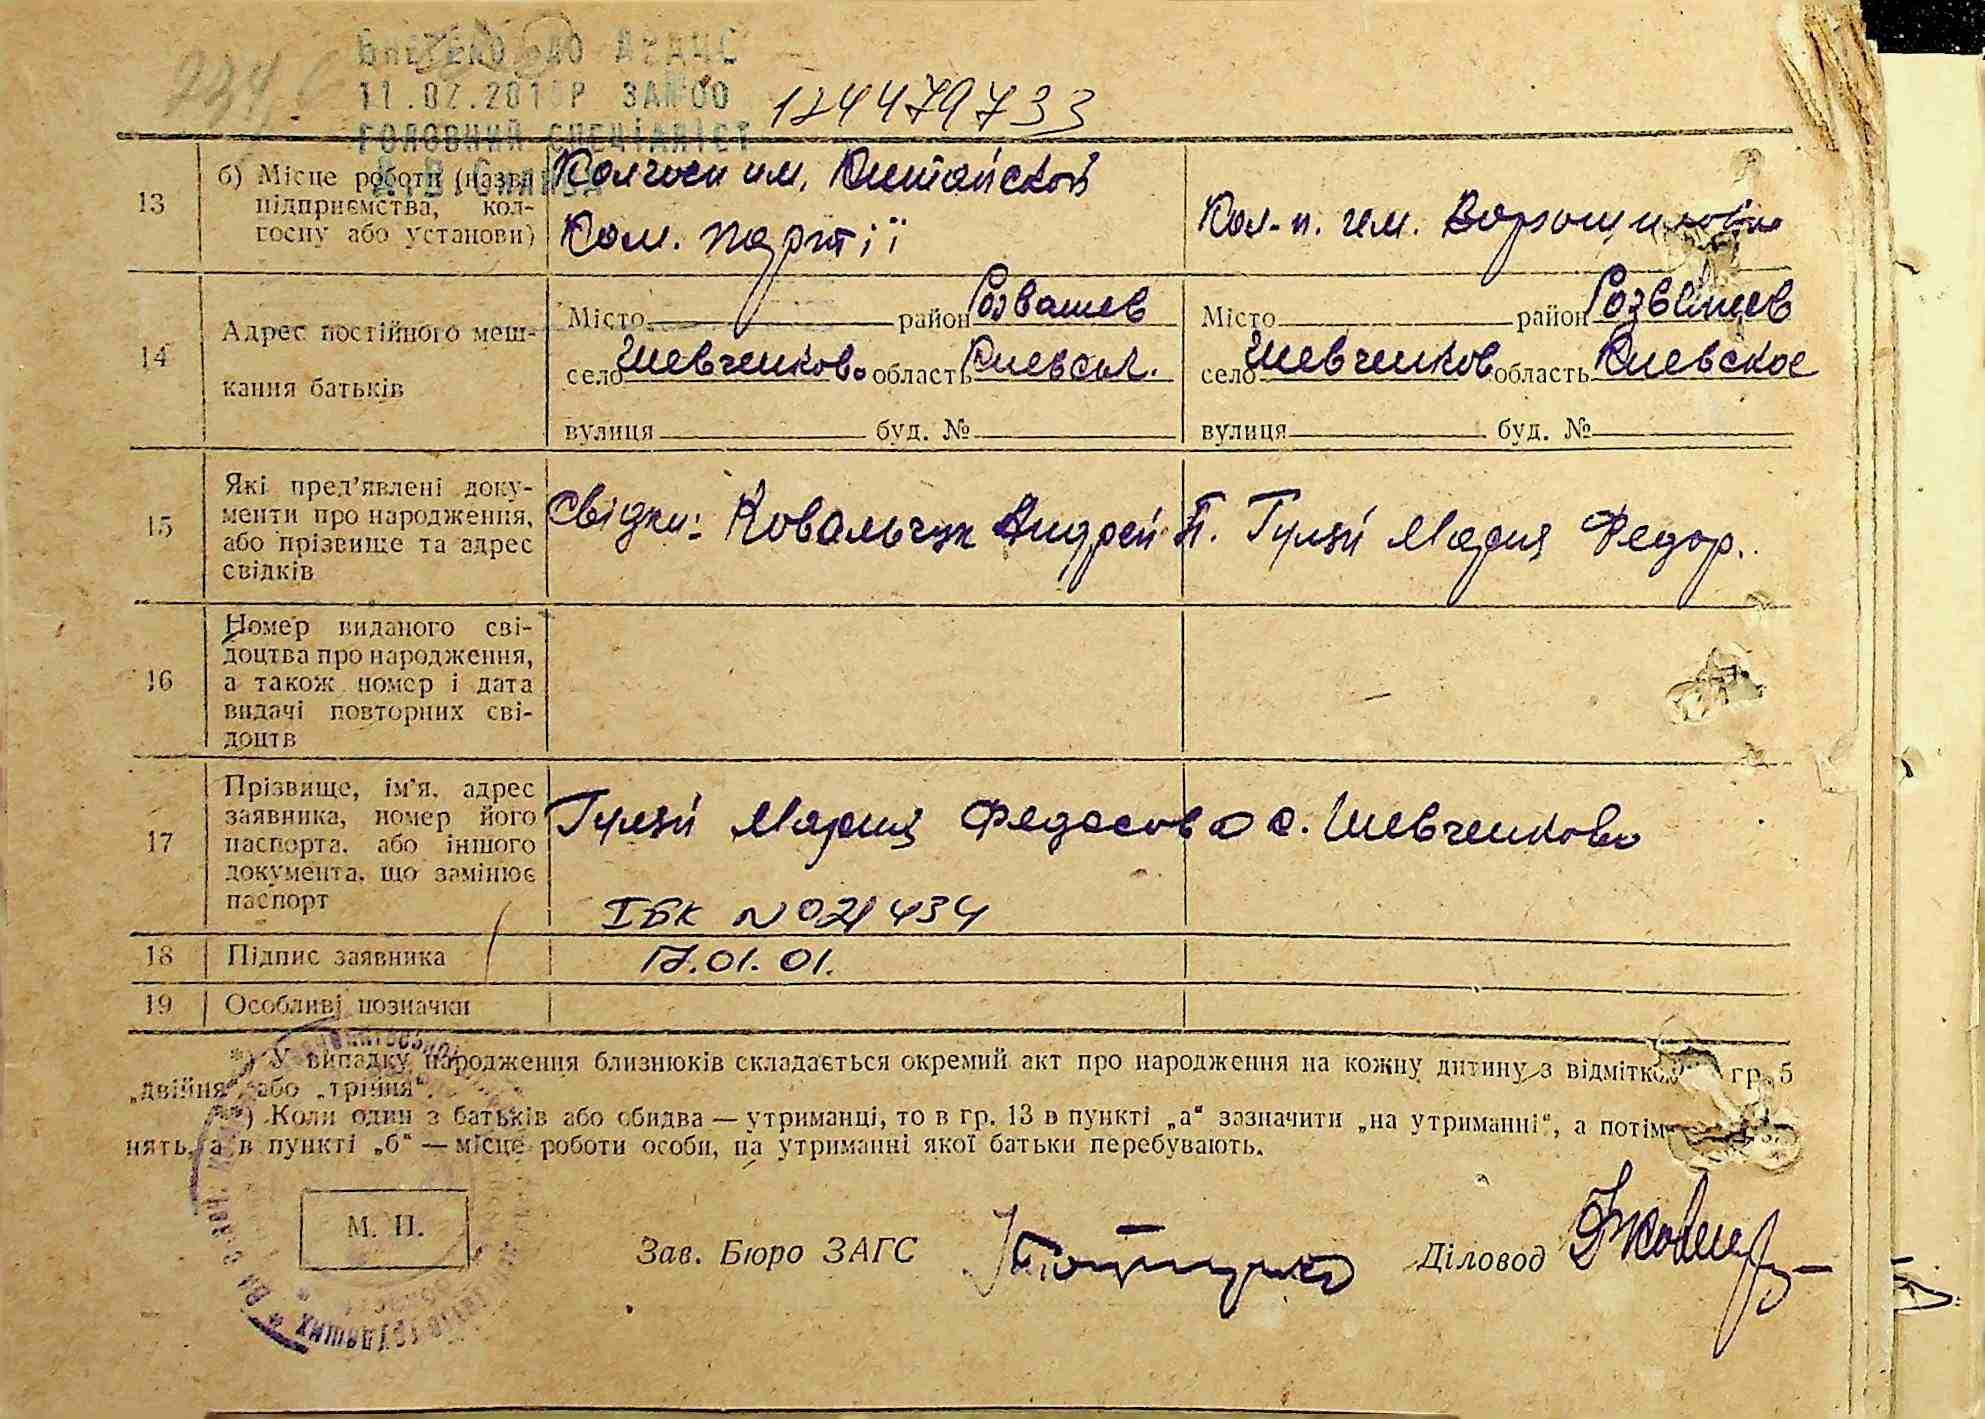 ВНЕСЕНО ДО ДРАЦС
11.02.201 Р ЗА №00
ГОЛОВНИЙ СПЕЦІАЛІСТ
124479733
13 б) Місце роботи (назва підприємства, кол-
госпу або установи)
Колгосп им. Китайской
Ком. партії
Кол-п. им. Ворошилова
14 Адрес постійного меш-
кання батьків
Місто район Розважев
село Шевченково область Киевск.
вулиця буд. №
Місто район Розважев
село Шевченков область Киевское
вулиця буд. №
15 Які пред’явлені доку-
менти про народження,
або прізвище та адрес
свідків
Свідки: Ковальчук Андрей П. Гулян Мария Федор.
16 Номер виданого сві-
доцтва про народження,
а також номер і дата
видачі повторних сві-
доцтв
17 Прізвище, ім’я, адрес
заявника, номер його
паспорта, або іншого
документа, що замінює
паспорт
Мария Федосовна с. Шевченково
ІБК № 021434
18 Підпис заявника
17.01.01.
19 Особливі позначки
*) У випадку народження близнюків складається окремий акт про народження на кожну дитину з відміткою гр. 5
„двійня“ або „трійня“.
**) Коли один з батьків або обидва — утриманці, то в гр. 13 в пункті „а“ зазначити „на утриманні“, а потім
нять, а в пункті „б“ — місце роботи особи, на утриманні якої батьки перебувають.
М. П.
Зав. Бюро ЗАГС
Діловод